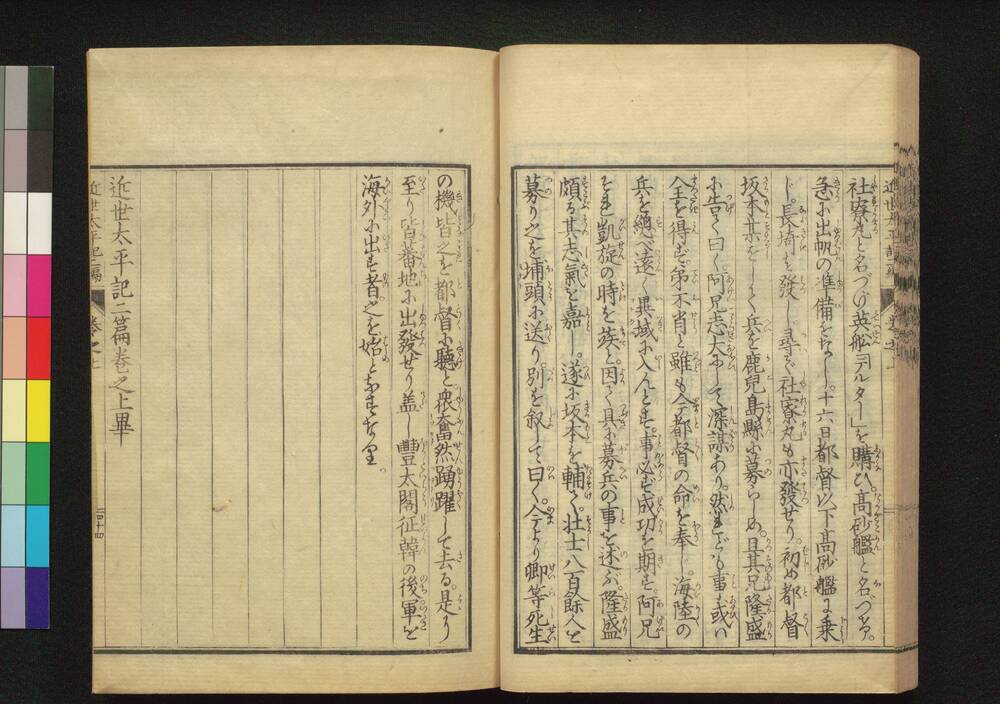 社寮丸と名づけ英舩「デルター」を購ひ髙砂艦と名づけ。
急に出帆の準備をなし。十六日都督以下高砂艦に乗
じ。長埼を發し尋で社寮丸も亦發せり。初め都督
坂本某をして兵を鹿児島縣に募らしめ。且其兄隆盛
に告て曰く阿兄志大にして深謀あり。然れども事或ハ
全を得ず。弟不肖と雖も今都督の命を奉じ。海陸の
兵を總べ遠く異域に入んとす。事必ず成功を期す。阿兄
それ凱旋の時を俟と。因て具に募兵の事を述ぶ隆盛
頗る其志氣を嘉し。遂に坂本を輔て。壮士八百餘人を
募り之を埔頭に送り別を叙して曰く。今より卿等死生
の機皆之を都督に聽と衆奮然踴躍して去る。是より
至り皆蕃地に出發せり盖し豐太閤征韓の後軍を
海外に出す者之を始とすなり
近世太平記二篇巻之上畢
近世太平記二編
巻之上
二四十四